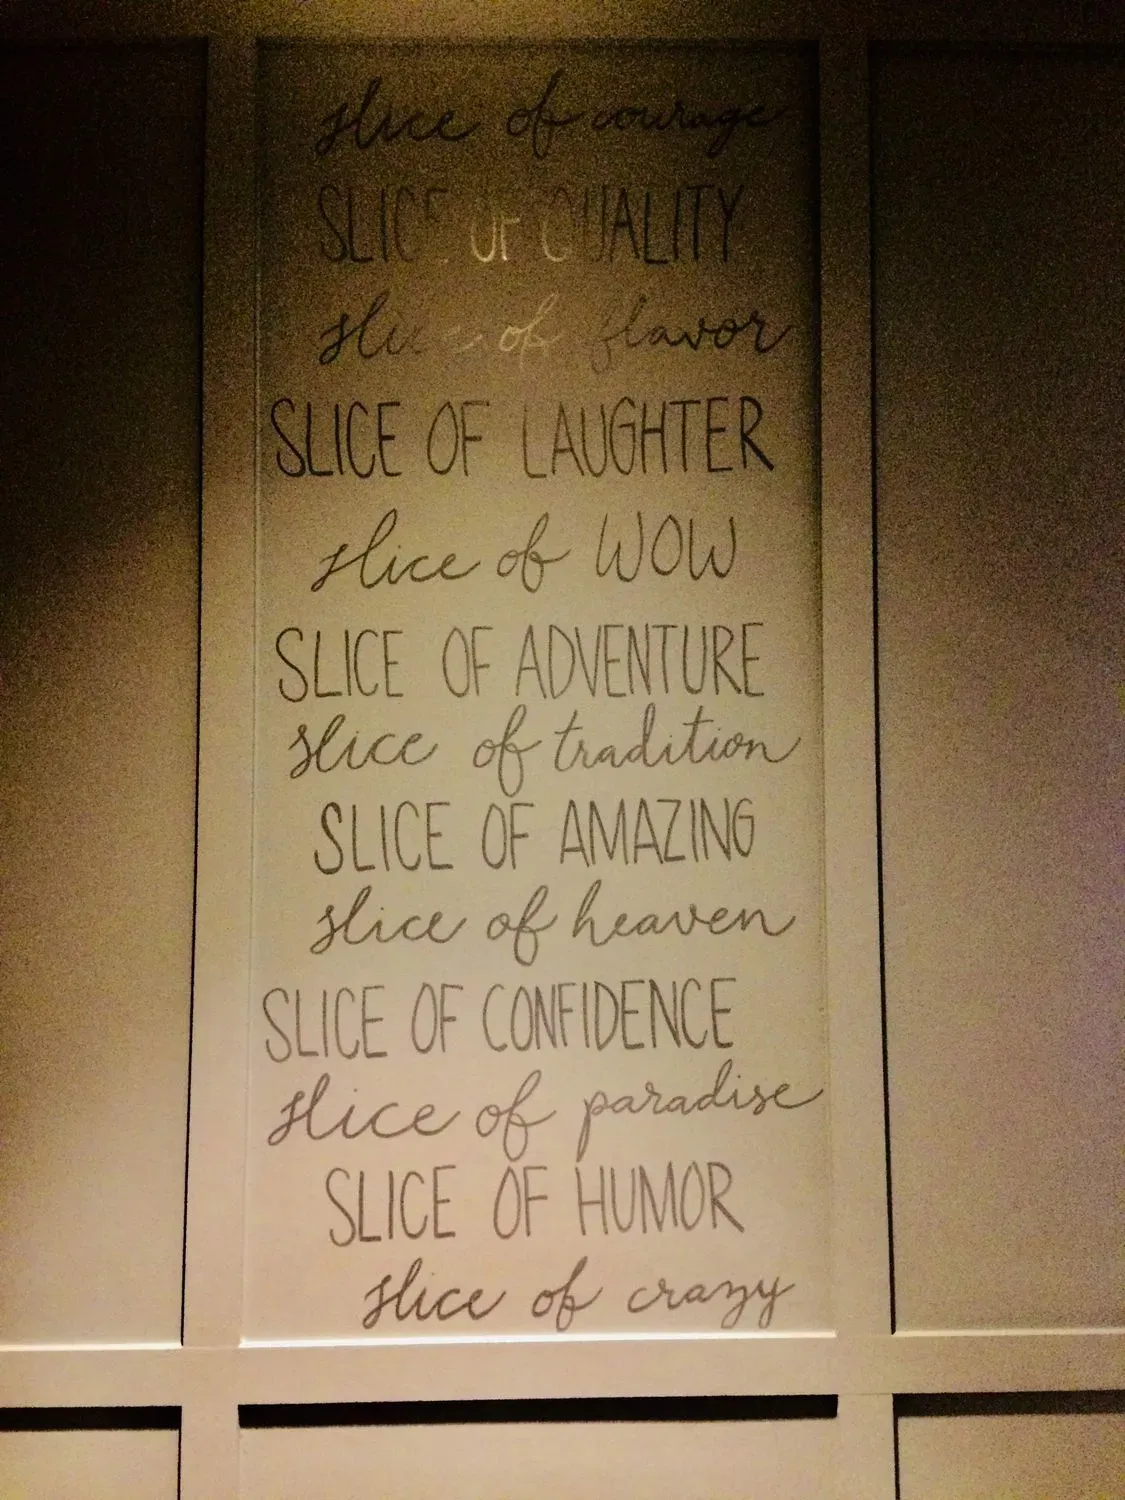 slice of courage
SLICE OF QUALITY
slice of flavor
SLICE OF LAUGHTER
slice of WOW
SLICE OF ADVENTURE
slice of tradition
SLICE OF AMAZING
slice of heaven
SLICE OF CONFIDENCE
slice of paradise
SLICE OF HUMOR
slice of crazy